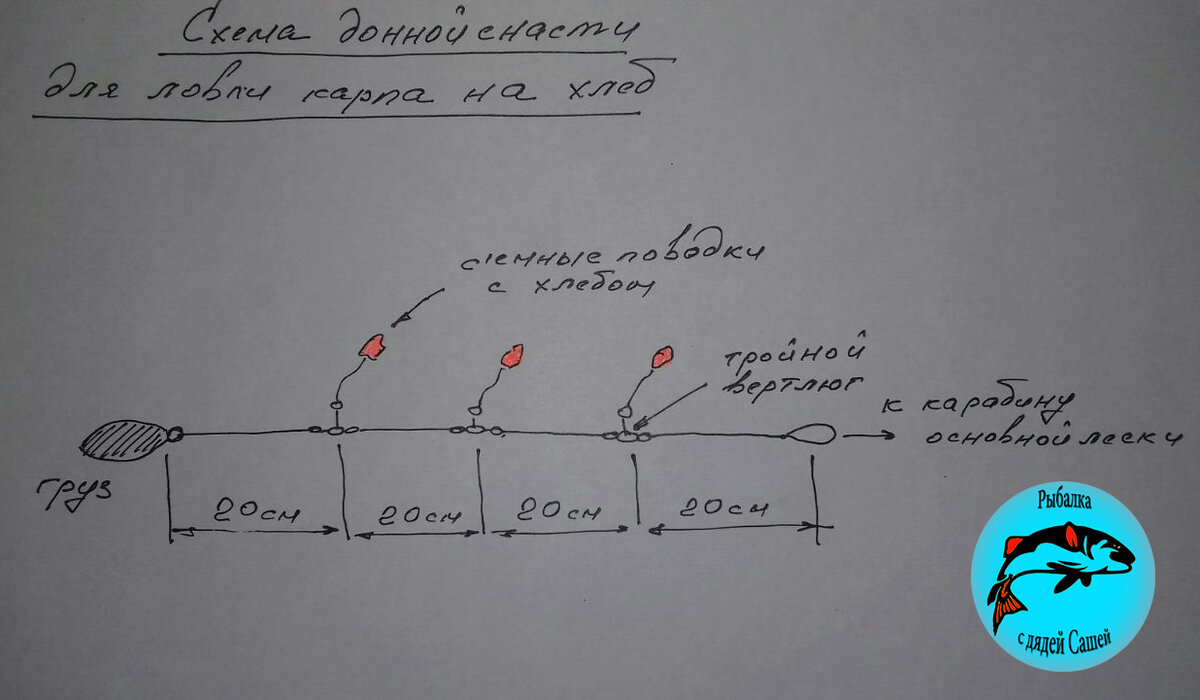 Схема донной снасти
для ловли карпа на хлеб
с'емные поводки
с хлебом
тройной
вертлюг
к карабину
основной лески
груз
20см
20см
20см
20см
Рыбалка
с дядей Сашей